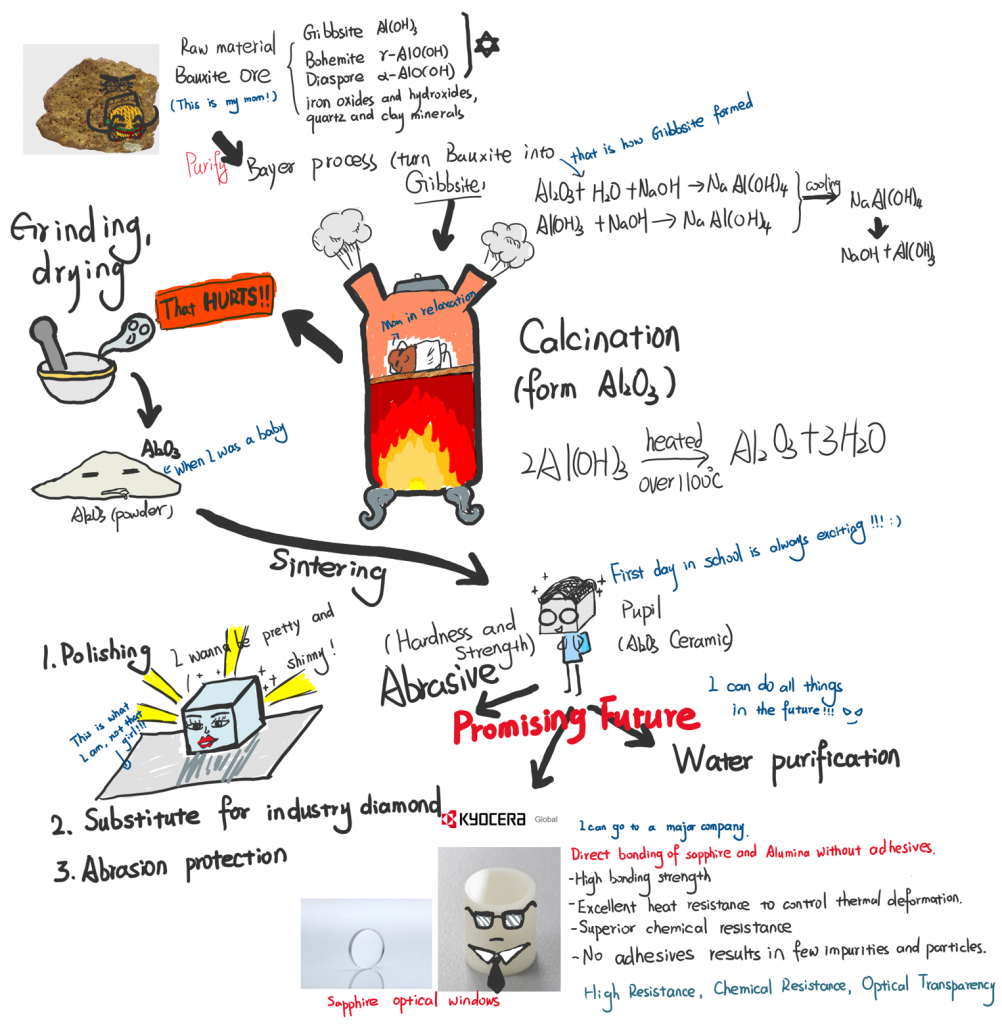 Raw material
Bauxite ore
(This is my mom!)
Gibbsite Al(OH)₃
Bohemite γ-AlO(OH)
Diaspore α-AlO(OH)
iron oxides and hydroxides,
quartz and clay minerals
Purify
Bayer process (turn Bauxite into
Gibbsite,
that is how Gibbsite formed
Al₂O₃+ H₂O +NaOH →NaAl(OH)₄
Al(OH)₃ +NaOH → NaAl(OH)₄
cooling
NaAl(OH)₄
NaOH + Al(OH)₃
Grinding,
drying
That HURTS!!
Mom in relaxation
Calcination
(form Al₂O₃)
2Al(OH)₃ heated over 1100°C Al₂O₃+3H₂O
Al₂O₃
when I was a baby
Al₂O₃ (powder)
Sintering
First day in school is always exciting!!! :)
Pupil
(Al₂O₃ Ceramic)
(Hardness and
Strength)
Abrasive
Promising Future
I can do all things
in the future!!!
Water purification
1. Polishing
I wanna be pretty and
shinny!
This is what
I am, not that
girl!!!
2. Substitute for industry diamond
3. Abrasion protection
KYOCERA Global
I can go to a major company.
Direct bonding of sapphire and Alumina without adhesives.
-High bonding strength
-Excellent heat resistance to control thermal deformation.
-Superior chemical resistance
-No adhesives results in few impurities and particles.
High Resistance, Chemical Resistance, Optical Transparency
Sapphire optical windows